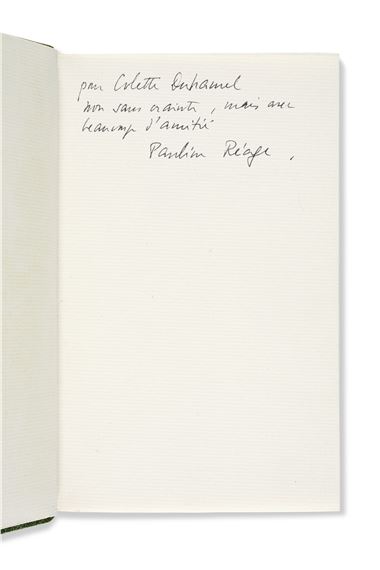 pour Colette Duhamel
non sans crainte, mais avec
beaucoup d'amitié
Pauline Réage.